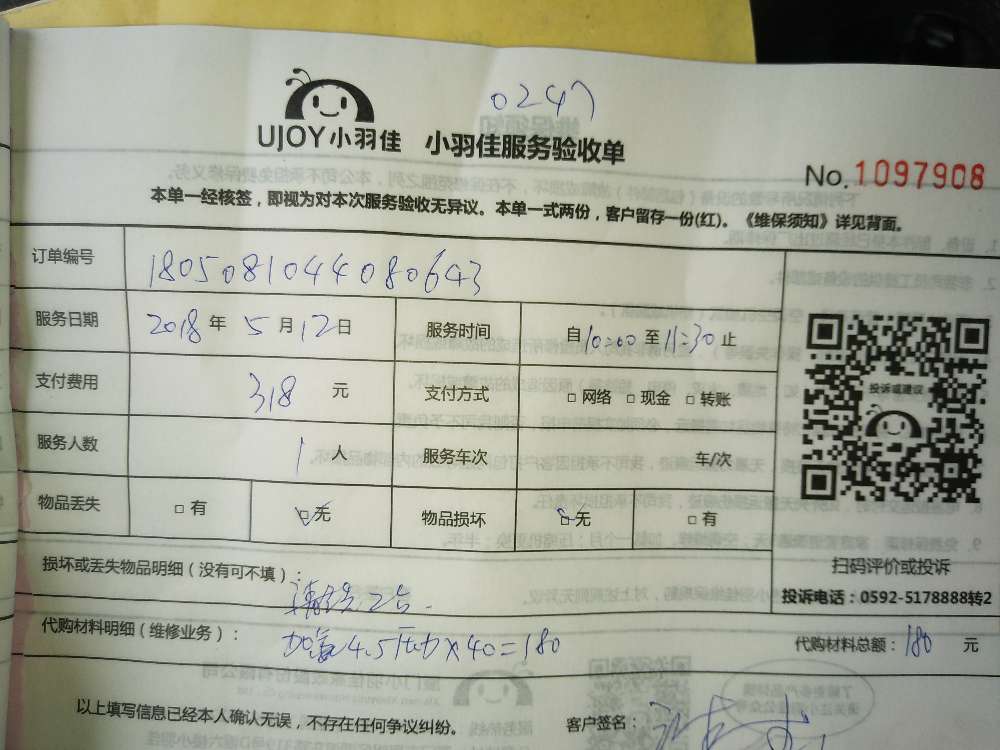 0247
UJOY小羽佳 小羽佳服务验收单
No.1097908
本单一经核签，即视为对本次服务验收无异议。本单一式两份，客户留存一份(红)。《维保须知》详见背面。
订单编号 18050810440080643
服务日期 2018年5月12日 服务时间 自10:00至11:30止
支付费用 318元 支付方式 □网络 □现金 □转账
服务人数 1人 服务车次 车/次
物品丢失 □有 ☑无 物品损坏 ☑无 □有
投诉或建议
扫码评价或投诉
投诉电话：0592-5178888转2
损坏或丢失物品明细（没有可不填）：
2台.
代购材料明细（维修业务）： 加氟4.5压力×40=180 代购材料总额：180元
以上填写信息已经本人确认无误，不存在任何争议纠纷。 客户签名：